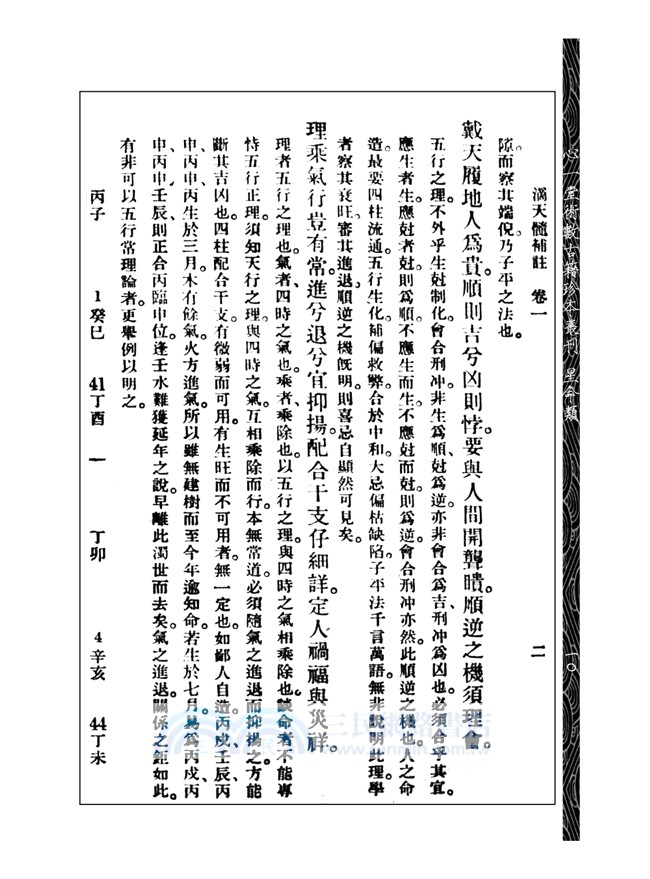 心一堂術數古籍珍本叢刊 星命類
一〇
滴天髓補註 卷一
二
隙。而察其端倪。乃子平之法也。
戴天履地人為貴。順則吉兮凶則悖。要與人間開聾聵。順逆之機須理會。
五行之理。不外乎生尅制化會合刑冲。非生為順、尅為逆、亦非會合為吉、刑冲為凶也。必須合乎其宜。
應生者生。應尅者尅。則為順。不應生而生。不應尅而尅。則為逆。會合刑冲亦然。此順逆之機也。人之命
造。最要四柱流通。五行生化。補偏救弊。合於中和。大忌偏枯缺陷。子平法千言萬語。無非說明此理。學
者察其衰旺。審其進退。順逆之機既明。則喜忌自顯然可見矣。
理乘氣行豈有常。進兮退兮宜抑揚。配合干支仔細詳。定人禍福與災祥。
理者五行之理也。氣者、四時之氣也。乘者、乘除也。以五行之理。與四時之氣相乘除也。談命者不能專
恃五行正理。須知天行之理。與四時之氣。互相乘除而行。本無常道。必須隨氣之進退。而抑揚之。方能
斷其吉凶也。四柱配合干支。有微弱而可用。有生旺而不可用者。無一定也。如鄙人自造。丙戌、壬辰、丙
申、丙申、丙生於三月。木有餘氣。火方進氣。所以雖無建樹。而至今年逾知命。若生於七月。易為丙戌、丙
申、丙申、壬辰、則正合丙臨申位。逢壬水難獲延年之說。早離此濁世而去矣。氣之進退。關係之鉅如此。
有非可以五行常理論者。更舉例以明之。
丙子 1癸巳 41丁酉 一 丁卯 4辛亥 44丁未
三民網路書店